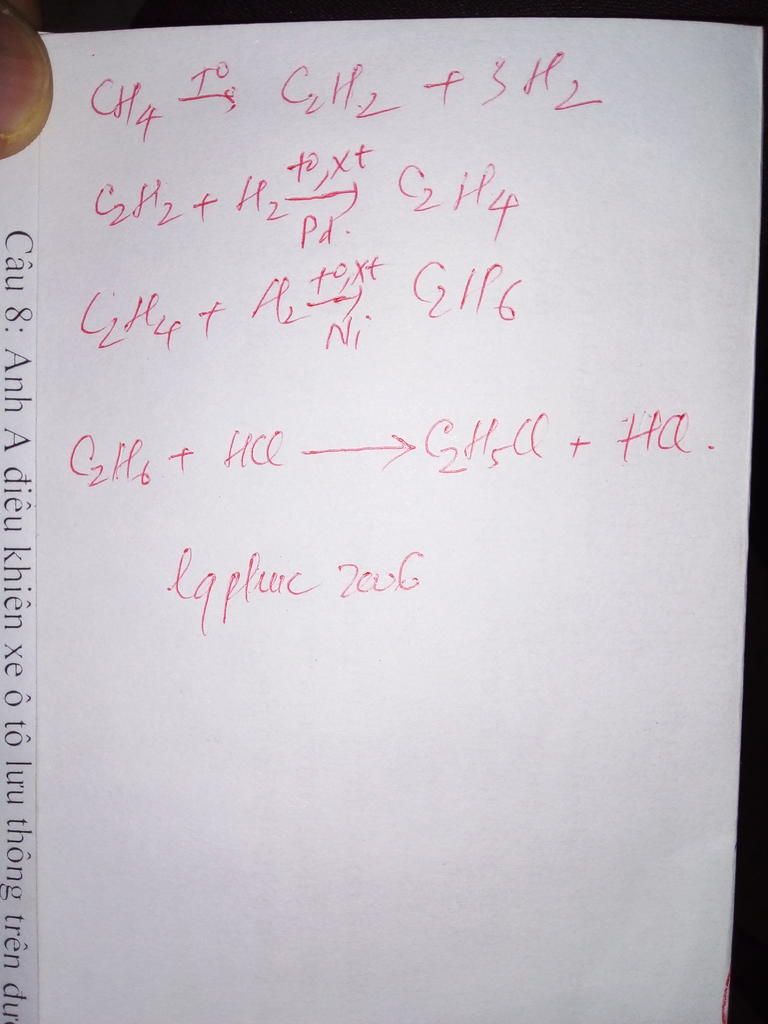 CH4 →t° C2H2 + 3H2
C2H2 + H2 →t°,xt Pd. C2H4
C2H4 + H2 →t°,xt Ni C2H6
C2H6 + HCl → C2H5Cl + HCl.
lqphuc 2006
Câu 8: Anh A điều khiển xe ô tô lưu thông trên